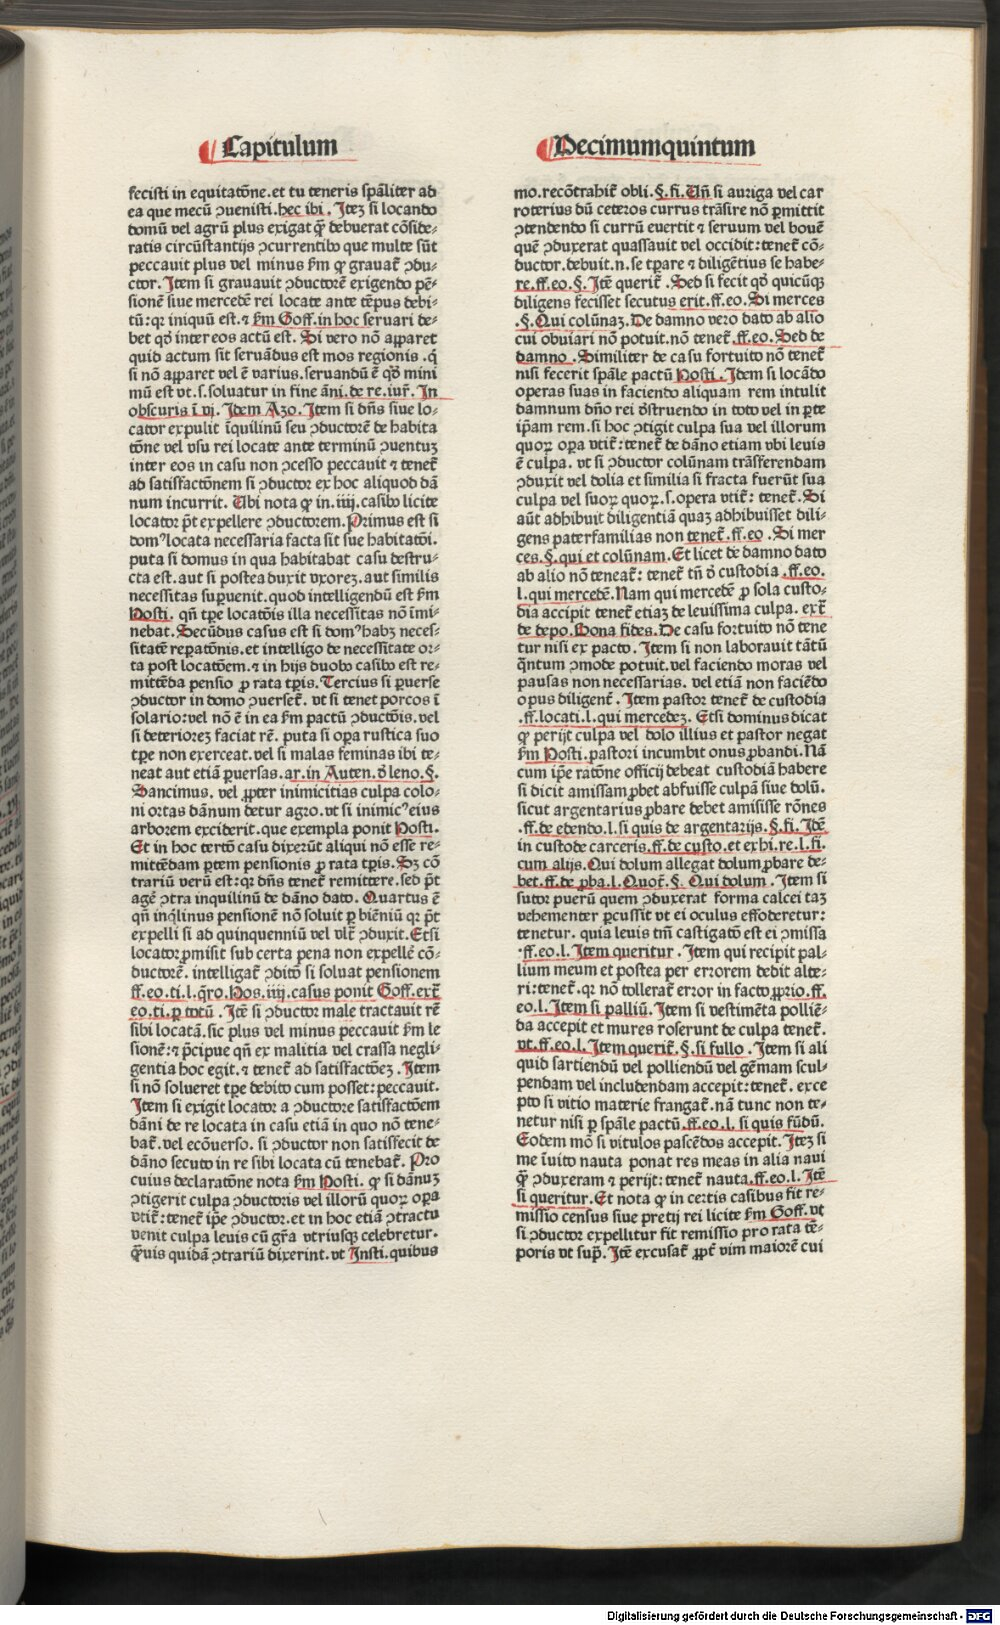 Capitulum
fecisti in equitatōne.et tu teneris spāliter ad
ea que mecū ꝯuenisti.hec ibi. Itez si locando
domū vel agrū plus exigat q̄ꝫ debuerat cōside⸗
ratis circūstantijs ꝯcurrentibꝰ que multe sūt
peccauit plus vel minus ẜm ꝙ grauat̄ ꝯdu⸗
ctor. Item si grauauit ꝯductorē exigendo pē⸗
sionē siue mercedē rei locate ante tēpus debi⸗
tū: qꝛ iniquū est. ⁊ ẜm Goff. in hoc seruari de⸗
bet qd̓ inter eos actū est. Si vero nō apparet
quid actum sit seruādus est mos regionis. q̓
si nō apparet vel ē varius. seruandū ē qd̓ mini
mū est vt.s.soluatur in fine āni. de re. iur̄. In
obscuris ī vj. Idem Azo. Item si dn̄s siue lo⸗
cator expulit īquilinū seu ꝯductorē de habita
tōne vel vsu rei locate ante terminū ꝯuentuꝫ
inter eos in casu non ꝯcesso peccauit ⁊ tenet̄
ad satisfactōnem si ꝯductor ex hoc aliquod dā
num incurrit. Ubi nota ꝙ in.iiij.casibꝰ licite
locator pōt expellere ꝯductorem. Primus est si
domꝰ locata necessaria facta sit sue habitatōi.
puta si domus in qua habitabat casu destru⸗
cta est. aut si postea duxit vxorez. aut similis
necessitas supuenit. quod intelligendū est ẜm
Hosti. qn̄ tꝑe locatōis illa necessitas nō īmi⸗
nebat. Secūdus casus est si domꝰ habꝫ neces⸗
sitatē repatōnis. et intelligo de necessitate or⸗
ta post locatōem. ⁊ in hijs duobꝰ casibꝰ est re⸗
mittēda pensio ꝓ rata tꝑis. Tercius si ꝑuerse
ꝯductor in domo ꝯuerset̄. vt si tenet porcos ī
solario: vel nō ē in ea ẜm pactū ꝯductōis. vel
si deteriorez faciat rē. puta si oꝑa rustica suo
tꝑe non exerceat. vel si malas feminas ibi te⸗
neat aut etiā ꝑuersas. ar. in Auten. d̓ leno. §.
Sancimus. vel ꝓpter inimicitias culpa colo⸗
ni ortas dānum detur agro. vt si inimicꝰ eius
arborem exciderit. que exempla ponit Hosti.
Et in hoc tertō casu dixerūt aliqui nō esse re⸗
mittēdam ꝑtem pensionis ꝓ rata tꝑis. Sꝫ cō
trariū verū est: qꝛ dn̄s tenet̄ remittere. sed pōt
agē ꝯtra inquilinū de dāno dato. Quartus ē
qn̄ inq̓linus pensionē nō soluit ꝑ biēniū qꝛ pōt
expelli si ad quinquenniū vel vlt̄ ꝯduxit. Etsi
locator ꝓmisit sub certa pena non expellē cō⸗
ductorē. intelligat̄ ꝯditō si soluat pensionem
ff. eo. ti. l. q̄ro. Hos. iiij. casus ponit Goff. ext̄
eo. ti. ꝑ totū. Itē si ꝯductor male tractauit rē
sibi locatā. sic plus vel minus peccauit ẜm le
sionē: ⁊ p̄cipue qn̄ ex malitia vel crassa negli⸗
gentia hoc egit. ⁊ tenet̄ ad satisfactōez. Item
si nō solueret tꝑe debito cum posset: peccauit.
Item si exigit locator a ꝯductore satisfactōem
dāni de re locata in casu etiā in quo nō tene⸗
bat̄. vel ecōuerso. si ꝯductor non satisfecit de
dāno secuto in re sibi locata cū tenebat̄. Pro
cuius declaratōne nota ẜm Hosti. ꝙ si dānuꝫ
ꝯtigerit culpa ꝯductoris vel illorū quoꝝ oꝑa
vtit̄: tenet̄ ip̄e ꝯductor. et in hoc etiā ꝯtractu
venit culpa leuis cū gr̄a vtriusqꝫ celebretur.
q̄ꝫuis quidā ꝯtrariū dixerint. vt Insti. quibus
Decimumquintum
mo. recōtrahit̄ obli. §. fi. Un̄ si auriga vel car
roterius dū ceteros currus trāsire nō ꝑmittit
ꝯtendendo si currū euertit ⁊ seruum vel bouē
quē ꝯduxerat quassauit vel occidit: tenet̄ cō⸗
ductor. debuit. n. se tꝑare ⁊ diligētius se habe⸗
re. ff. eo. §. Itē querit̄. Sed si fecit qd̓ quicūqꝫ
diligens fecisset secutus erit. ff. eo. Si merces
.§. Qui colūnaꝫ. De damno vero dato ab alio
cui obuiari nō potuit. nō tenet̄. ff. eo. Sed de
damno. Similiter de casu fortuito nō tenet̄
nisi fecerit spāle pactū Hosti. Idem si locādo
operas suas in faciendo aliquam rem intulit
damnum dn̄o rei d̓struendo in toto vel in ꝑte
ip̄am rem. si hoc ꝯtigit culpa sua vel illorum
quoꝝ oꝑa vtit̄: tenet̄ de dāno etiam vbi leuis
ē culpa. vt si ꝯductor colūnam trāsferendam
ꝯduxit vel dolia et similia si fracta fuerūt sua
culpa vel suoꝝ quoꝝ. s. opera vtit̄: tenet̄. Si
aūt adhibuit diligentiā quaꝫ adhibuisset dili⸗
gens paterfamilias non tenet̄. ff. eo. Si mer
ces. §. qui et colūnam. Et licet de damno dato
ab alio nō teneat̄: tenet̄ tn̄ d̓ custodia. ff. eo.
l. qui mercedē. Nam qui mercedē ꝓ sola custo⸗
dia accipit tenet̄ etiaꝫ de leuissima culpa. ext̄
de depo. Bona fides. De casu fortuito nō tene
tur nisi ex pacto. Item si non laborauit tātū
q̄ntum ꝯmode potuit. vel faciendo moras vel
pausas non necessarias. vel etiā non faciēdo
opus diligent̄. Item pastor tenet̄ de custodia
.ff. locati. l. qui mercedeꝫ. Etsi dominus dicat
ꝙ perijt culpa vel dolo illius et pastor negat
ẜm Hosti. pastori incumbit onus ꝓbandi. Nā
cum ip̄e ratōne officij debeat custodiā habere
si dicit amissam ꝓbet abfuisse culpā siue dolū.
sicut argentarius ꝓbare debet amisisse rōnes
.ff. de edendo. l. si quis de argentarijs. §. fi. Idē
in custode carceris. ff. de custo. et exhi. re. l. fi.
cum alijs. Qui dolum allegat dolum ꝓbare de⸗
bet. ff. de ꝓba. l. Quot̄. §. Qui dolum. Item si
sutor puerū quem ꝯduxerat forma calcei taꝫ
vehementer ꝑcussit vt ei oculus effoderetur:
tenetur. quia leuis tm̄ castigatō est ei ꝯmissa
.ff. eo. l. Item queritur. Item qui recipit pal⸗
lium meum et postea per errorem dedit alte⸗
ri: tenet̄. qꝛ nō tollerat̄ error in facto ꝓprio. ff.
eo. l. Item si palliū. Item si vestimēta polliē⸗
da accepit et mures roserunt de culpa tenet̄.
vt. ff. eo. l. Item querit̄. §. si fullo. Item si ali
quid sartiendū vel polliendū vel gēmam scul⸗
pendam vel includendam accepit: tenet̄. exce
pto si vitio materie frangat̄. nā tunc non te⸗
netur nisi ꝑ spāle pactū. ff. eo. l. si quis fūdū.
Eodem mō si vitulos pascēdos accepit. Iteꝫ si
me īuito nauta ponat res meas in alia naui
q̄ꝫ ꝯduxeram ⁊ perijt: tenet̄ nauta. ff. eo. l. Itē
si queritur. Et nota ꝙ in certis casibus fit re⸗
missio census siue pretij rei licite ẜm Goff. vt
si ꝯductor expellitur fit remissio pro rata tē⸗
poris vt sup̄. Itē excusat̄ ꝓpt̄ vim maiorē cui
Digitalisierung gefördert durch die Deutsche Forschungsgemeinschaft - DFG